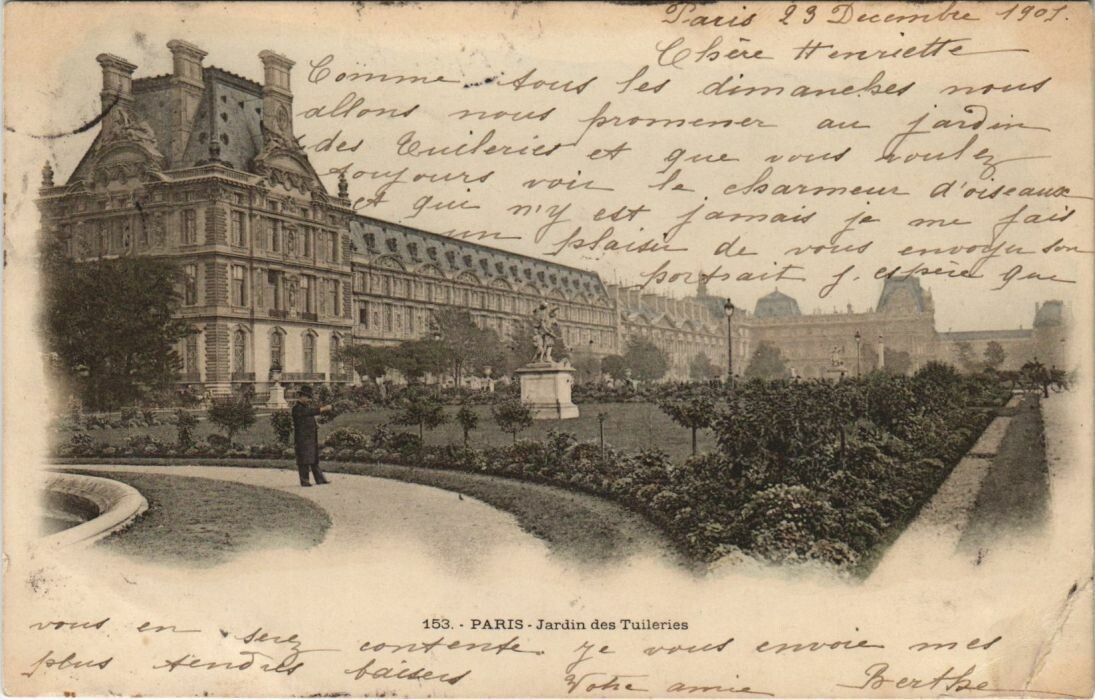 Paris 23 Decembre 1901.
Chère Henriette
Comme tous les dimanches nous
allons nous promener au jardin
des Tuileries et que vous voulez
toujours voir le charmeur d'oiseaux
et qui n'y est jamais je me fais
un plaisir de vous envoyer son
portrait j'espère que
153. - PARIS - Jardin des Tuileries
vous en serez contente. Je vous envoie mes
plus tendres baisers
Votre amie Berthe